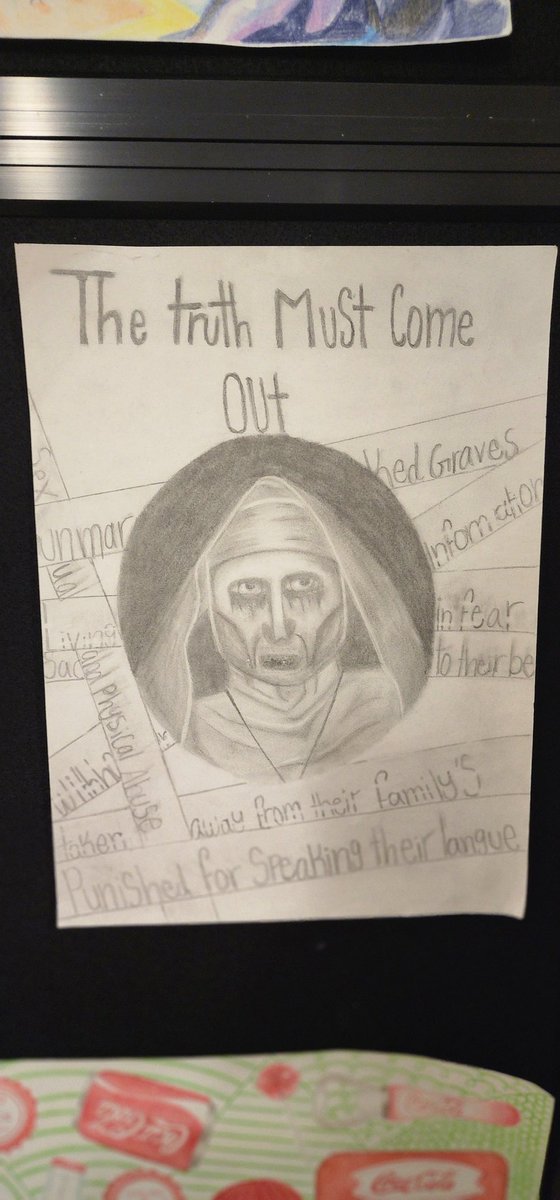 The truth Must Come
Out
Sexual and physical Abuse
unmar
ked Graves
Infomation
Living
in fear
to their be
away from their family's
taken
Punished for Speaking their langue
Coca-Cola
Coca-Cola